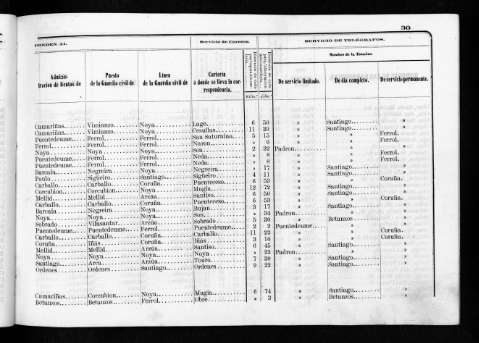 30
CORRESPONDEN AL
Servicio de Correos.
SERVICIO DE TELÉGRAFOS.
Nombre de la Estación.
Administracion de Rentas de
Puesto de la Guardia civil de
Línea de la Guardia civil de
Cartería á donde se lleva la correspondencia.
De servicio limitado.
De día completo.
De servicio permanente.
Camariñas Vimianzo Noya Lage 6 50 » Santiago »
Camariñas Vimianzo Noya 11 39 » Santiago »
Puentedeume Ferrol Ferrol San Saturnino 5 15 » » Ferrol
Ferrol Ferrol Ferrol Naron » 6 » » Ferrol
Noya Noya Noya Son 2 32 Padron » »
Puentedeume Ferrol Ferrol Neda » 8 » » Ferrol
Ferrol Ferrol Ferrol Neda » 6 » » Ferrol
Barcala Negreira Noya Negreira » 17 » Santiago »
Paulo Sigüeiro Santiago Sigüeiro 4 11 » Santiago »
Carballo Carballo Coruña Puenteceso 8 56 » » Coruña
Corcubion Corcubion Noya Mugía 12 72 » Santiago »
Mellid Mellid Arzúa Santiso 6 50 » Santiago »
Carballo Carballo Coruña Puenteceso 6 53 » » Coruña
Barcala Negreira Noya Rojan 3 17 » Santiago »
Noya Noya Noya Son » 34 Padron » »
Sobrado Villasantar Arzúa Sobrado 5 39 » Betanzos »
Puentedeume Puentedeume Ferrol Puentedeume 2 2 Puentedeume » »
Carballo Carballo Coruña Carballo 11 22 » » Coruña
Coruña Iñás Coruña Iñás 3 16 » » Coruña
Mellid Mellid Arzúa Santiso 6 45 » Santiago »
Noya Noya Noya Noya » 22 Padron » »
Santiago Arca Arzúa Touro 7 38 » Santiago »
Ordenes Ordenes Santiago Ordenes 9 22 » Santiago »
Camariñas Corcubion Noya Mugía 6 74 » Santiago »
Betanzos Betanzos Ferrol Obre » 3 » Betanzos »